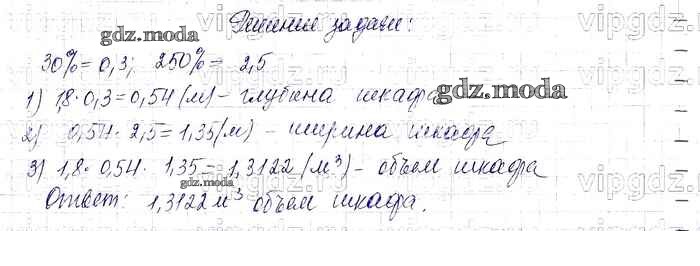 Решение задачи:
30% = 0,3; 250% = 2,5
1) 1,8 · 0,3 = 0,54 (м) - глубина шкафа
2) 0,54 · 2,5 = 1,35 (м) - ширина шкафа
3) 1,8 · 0,54 · 1,35 = 1,3122 (м³) - объем шкафа
Ответ: 1,3122 м³ объем шкафа.
gdz.moda
gdz.moda
gdz.moda
vipgdz.
vipgdz.
vipgdz.